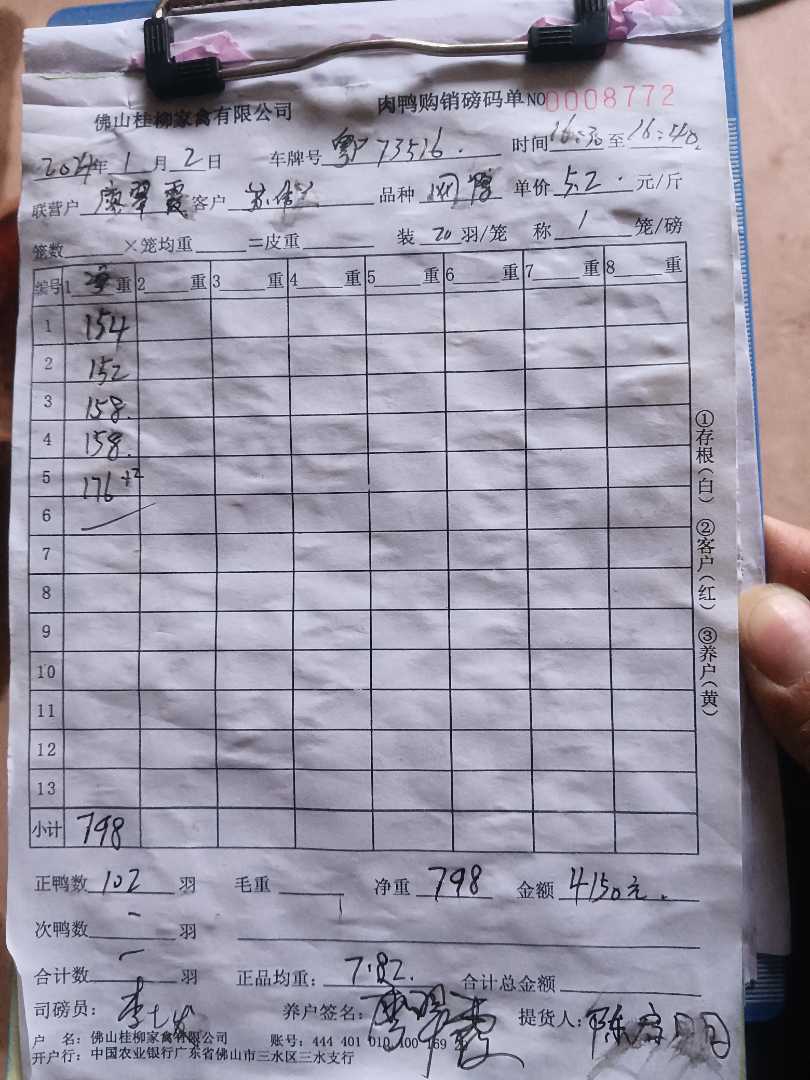 佛山桂柳家禽有限公司 肉鸭购销磅码单NO0008772
2024年1月2日 车牌号 粤 73516. 时间16:30至16:40
联营户 廖翠霞 客户 品种 肉鸭 单价 5.2 元/斤
笼数 ×笼均重 =皮重 装 20 羽/笼 称 1 笼/磅
编号 1 净重 2 重 3 重 4 重 5 重 6 重 7 重 8 重
1 154
2 152
3 158.
4 158.
5 176+2
6
7
8
9
10
11
12
13
小计 798
正鸭数 102 羽 毛重 净重 798 金额 4150元.
次鸭数 - 羽
合计数 - 羽 正品均重: 7.82. 合计总金额
司磅员: 李 养户签名: 廖翠霞 提货人: 陈
户 名: 佛山桂柳家禽有限公司 账号: 444 401 010 400 169
开户行: 中国农业银行广东省佛山市三水区三水支行
①存根(白) ②客户(红) ③养户(黄)